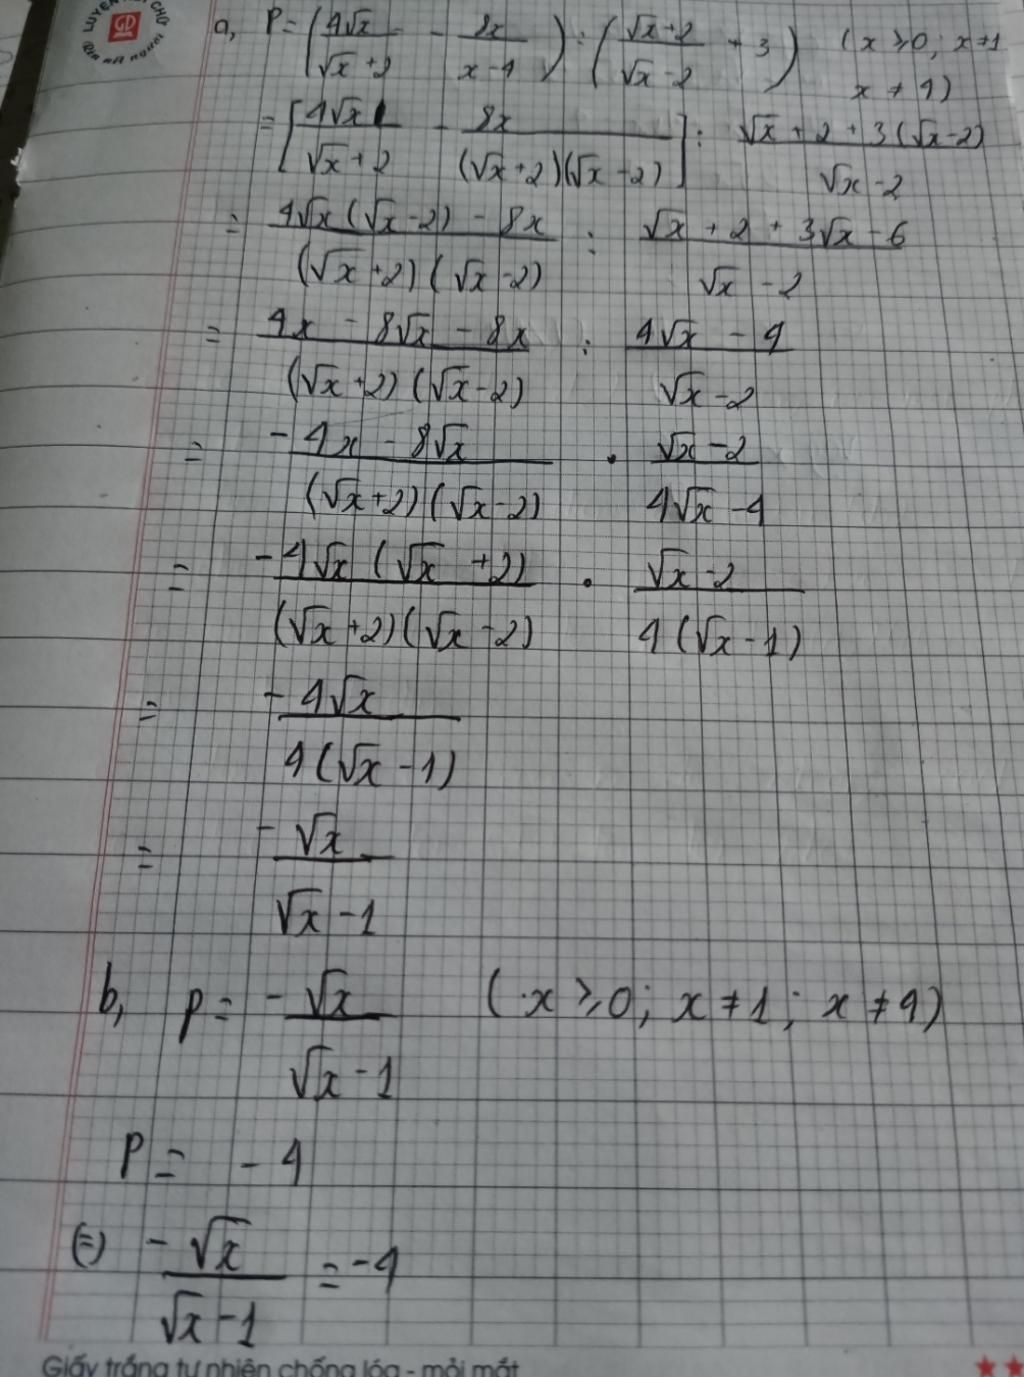 LUYỆN
CHỮ
GD
a, P = (4√x/(√x+2) - 8x/(x-4)) : ((√x+2)/(√x-2) + 3) (x ≥ 0; x ≠ 1
x ≠ 4)
= [4√x/(√x+2) - 8x/((√x+2)(√x-2))] : (√x+2+3(√x-2))/(√x-2)
= (4√x(√x-2) - 8x)/((√x+2)(√x-2)) : (√x+2+3√x-6)/(√x-2)
= (4x - 8√x - 8x)/((√x+2)(√x-2)) : (4√x-4)/(√x-2)
= (-4x - 8√x)/((√x+2)(√x-2)) . (√x-2)/(4√x-4)
= (-4√x(√x+2))/((√x+2)(√x-2)) . (√x-2)/(4(√x-1))
= -4√x/(4(√x-1))
= -√x/(√x-1)
b, P = -√x/(√x-1) (x ≥ 0; x ≠ 1; x ≠ 4)
P = -4
(=) -√x/(√x-1) = -4
Giấy trắng tự nhiên chống lóa - mỏi mắt